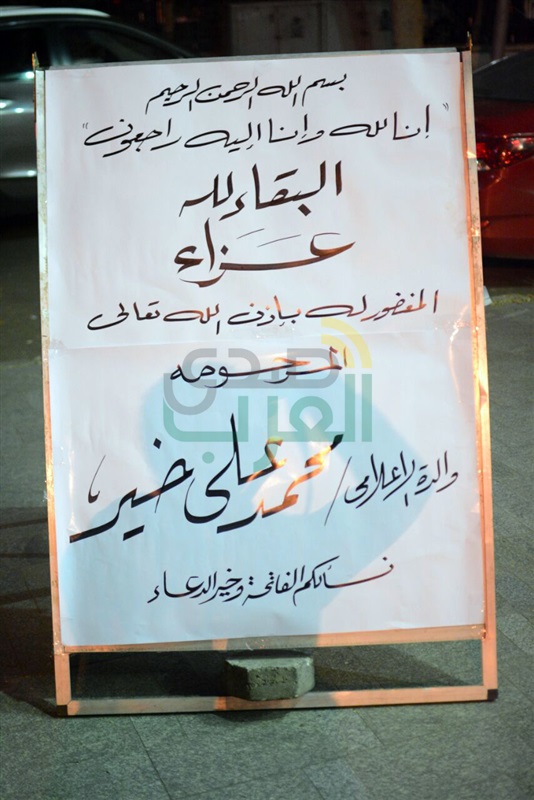 بسم الله الرحمن الرحيم
"إنا لله وإنا إليه راجعون"
البقاء لله
عزاء
المغفور له بإذن الله تعالى
المرحومه
صدى العرب
والدة الإعلامى / محمد على خير
نسألكم الفاتحة وخير الدعاء